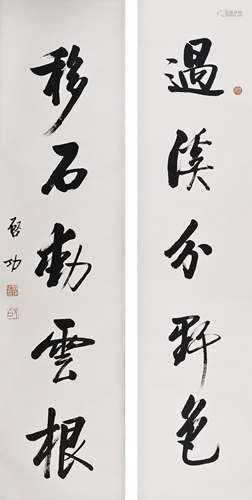 過溪分野色
移石動雲根
啟功